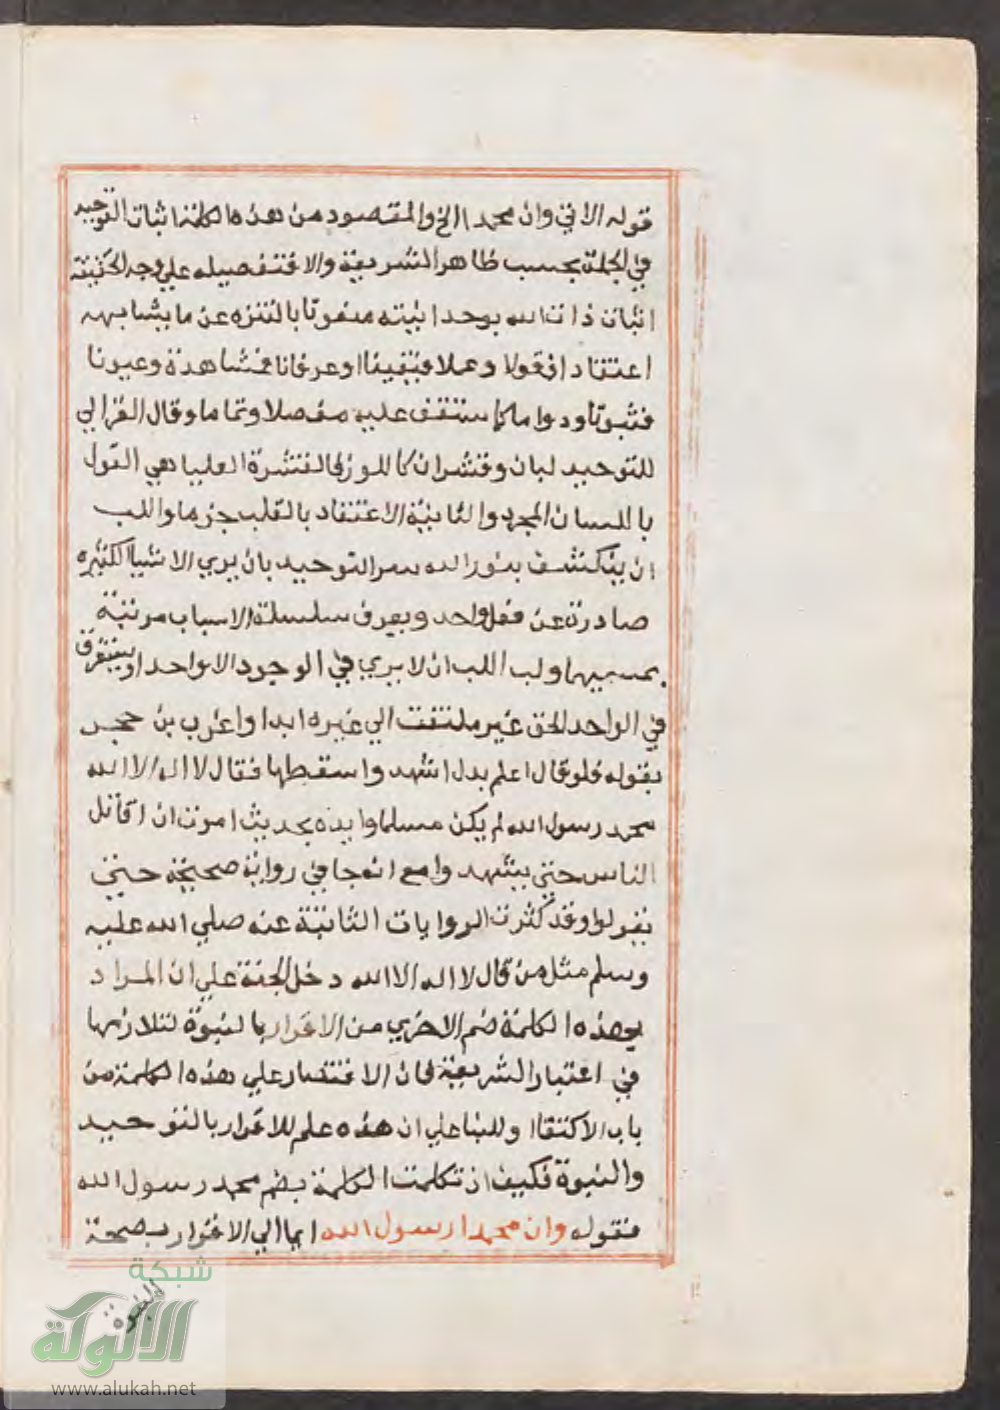 قوله الاتي وان محمدا الخ والمقصود من هذه الكلمة اثبات التوحيد
في الجملة بحسب ظاهر الشريعة والا فتفصيله علي وجه الحقيقة
اثبات ذات الله بوحدانيته منعوتا بالتنزه عن ما يشابهه
اعتقادا فقولا وعملا فيقينا او عرفانا فمشاهدة وعيونا
فثبوتا ودواما كما ستقف عليه مفصلا وتماما وقال الغزالي
للتوحيد لبان وقشران كاللوز فالقشرة العليا هي القول
باللسان المجرد والثانية الاعتقاد بالقلب جزما واللب
ان ينكشف بنور الله سر التوحيد بان يري الاشيا الكثيرة
صادرة عن فعل واحد ويعرف سلسلة الاسباب مرتبة
بمسبيها ولب اللب ان لا يري في الوجود الا واحدا ويستغرق
في الواحد الحق غير ملتفت الي غيره ابدا واغرب بن حجر
بقوله فلو قال اعلم بدل اشهد واسقطها فقال لا اله الا الله
محمد رسول الله لم يكن مسلما وايده بحديث امرت ان اقاتل
الناس حتي يشهدوا مع انه جا في رواية صحيحة حتي
يقولوا وقد كثرت الروايات الثابتة عنه صلي الله عليه
وسلم مثل من قال لا اله الا الله دخل الجنة علي ان المراد
بهذه الكلمة ضم الاخري من الاقرار بالنبوة لتلازمها
في اعتبار الشريعة فان الاقتصار علي هذه الكلمة من
باب الاكتفا او للبنا علي ان هذه علم للاقرار بالتوحيد
والنبوة فكيف اذ تكلمت الكلمة بضم محمد رسول الله
فقوله وان محمدا رسول الله ايما الي الاقرار بصحة
النبوة
شبكة
الألوكة
www.alukah.net